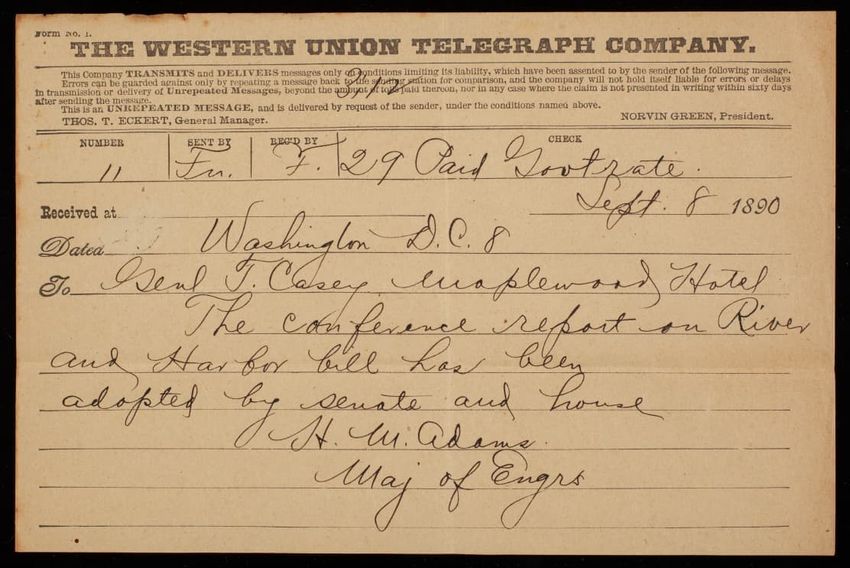 Form No. 1.
THE WESTERN UNION TELEGRAPH COMPANY.
This Company TRANSMITS and DELIVERS messages only on conditions limiting its liability, which have been assented to by the sender of the following message.
Errors can be guarded against only by repeating a message back to the sending station for comparison, and the company will not hold itself liable for errors or delays
in transmission or delivery of Unrepeated Messages, beyond the amount of tolls paid thereon, nor in any case where the claim is not presented in writing within sixty days
after sending the message.
This is an UNREPEATED MESSAGE, and is delivered by request of the sender, under the conditions named above.
THOS. T. ECKERT, General Manager. NORVIN GREEN, President.
NUMBER SENT BY REC'D BY CHECK
11 Fn. F. 29 Paid Govt rate.
Received at Sept. 8 1890
Dated Washington D.C. 8
To Genl T. Casey, Maplewood Hotel
The conference report on River
and Harbor bill has been
adopted by senate and house
H. M. Adams.
Maj of Engrs